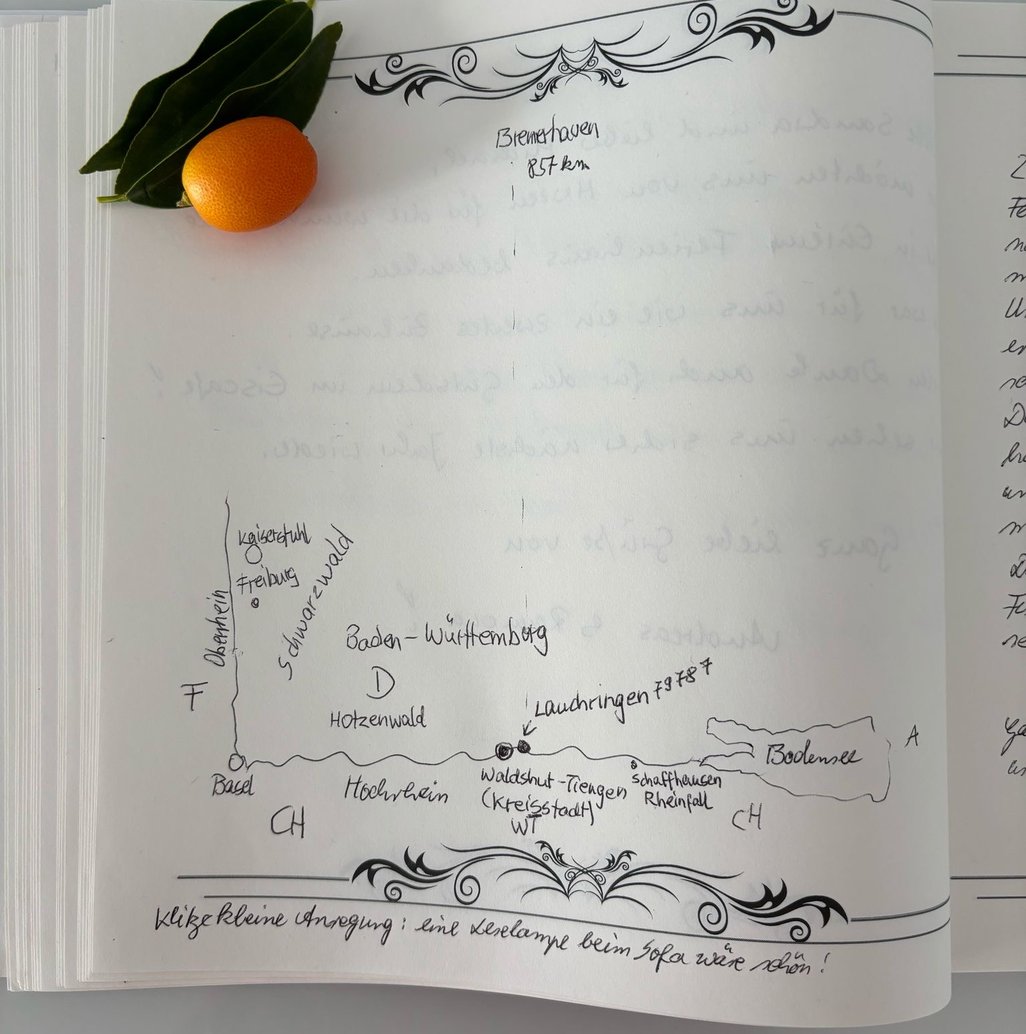 Bremerhaven
857 km
Kaiserstuhl
Freiburg
Schwarzwald
Oberrhein
Baden-Württemberg
F
D
Hotzenwald
Lauchringen 79787
A
Bodensee
Basel
Hochrhein
Waldshut-Tiengen
(Kreisstadt)
WT
Schaffhausen
Rheinfall
CH
CH
Klitzekleine Anregung: eine Leselampe beim Sofa wäre schön!